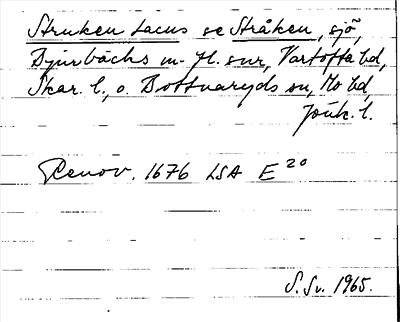 Struken Lacus se Stråken, sjö,
Djurbäcks m. fl. snr, Vartofta hd,
Skar. l., o. Bottnaryds sn, Mo hd,
Jönk. l.
Renov. 1676 LSA E 20
S. Sv. 1965.